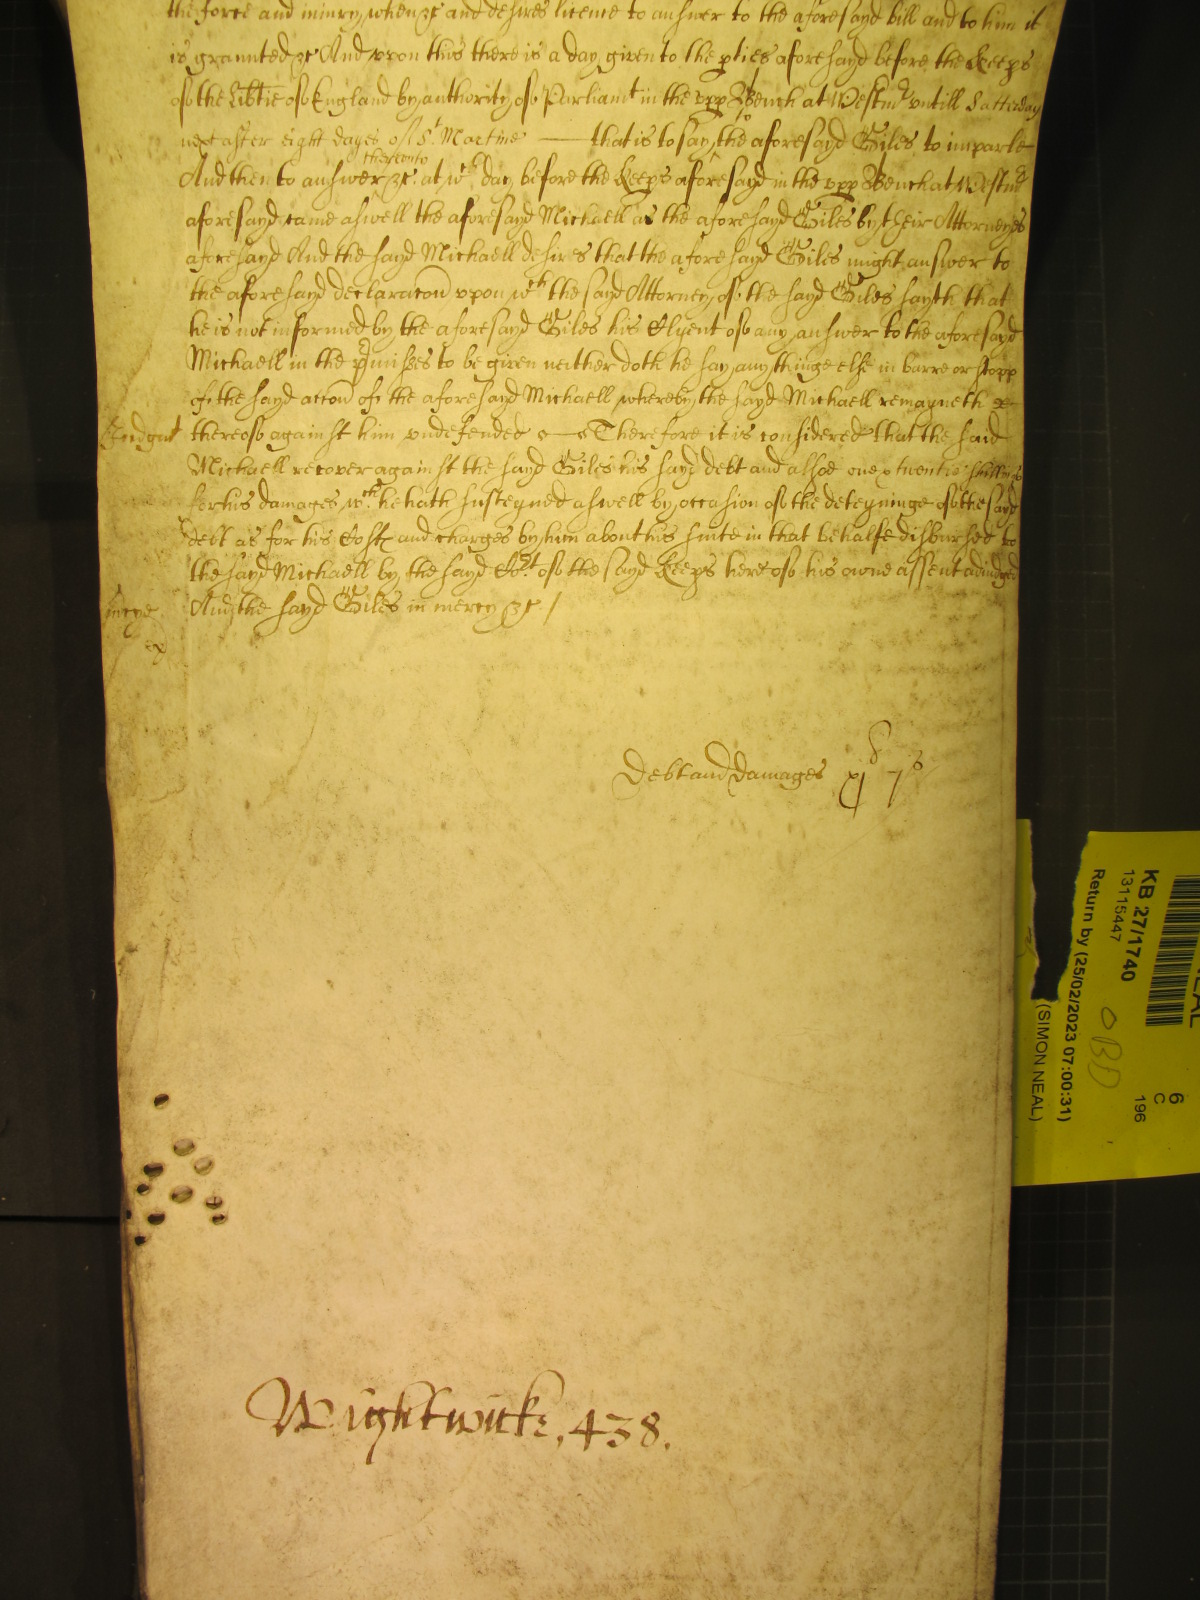 the force and iniury when &c and desires licence to answer to the aforesayd bill and to him it
is graunted &c And vpon this there is a day given to the pties aforesayd before the Keeps
of the Libtie of England by authority of Parliamt in the vpp Bench at Westmr vntill Satterday
next after eight dayes of St. Martine —— that is to say, the aforesayd Giles to imparle
And then to answer thereunto &c. at wch day before the Keeps aforesayd in the vpp Bench at Westmr
aforesayd came aswell the aforesayd Michaell as the aforesayd Giles by their Attorneyes
aforesayd And the sayd Michaell desires that the aforesayd Giles might answer to
the aforesayd declaracon vpon wch the sayd Attorney of the sayd Giles sayth that
he is not informed by the aforesayd Giles his Clyent of any answer to the aforesayd
Michaell in the pmisses to be given neither doth he say any thinge else in barre or stopp
of the sayd accon of the aforesayd Michaell whereby the sayd Michaell remayneth
Judgmt thereof against him vndefended Therefore it is considered that the said
Michaell recover against the sayd Giles his sayd debt and alsoe one & twentie shillings
for his damages wch he hath susteyned aswell by occasion of the deteyninge of the sayd
debt as for his Costs and charges by him about his suite in that behalfe disbursed to
the sayd Michaell by the sayd Cort of the sayd Keeps here of his owne assent adiudged
mercye And the sayd Giles in mercy &c /
Debt and damages xj l j s
Wightwicke, 438.
KB 27/1740
13115447
Return by (25/02/2023 07:00:31)
(SIMON NEAL)
OBD
6
C
196